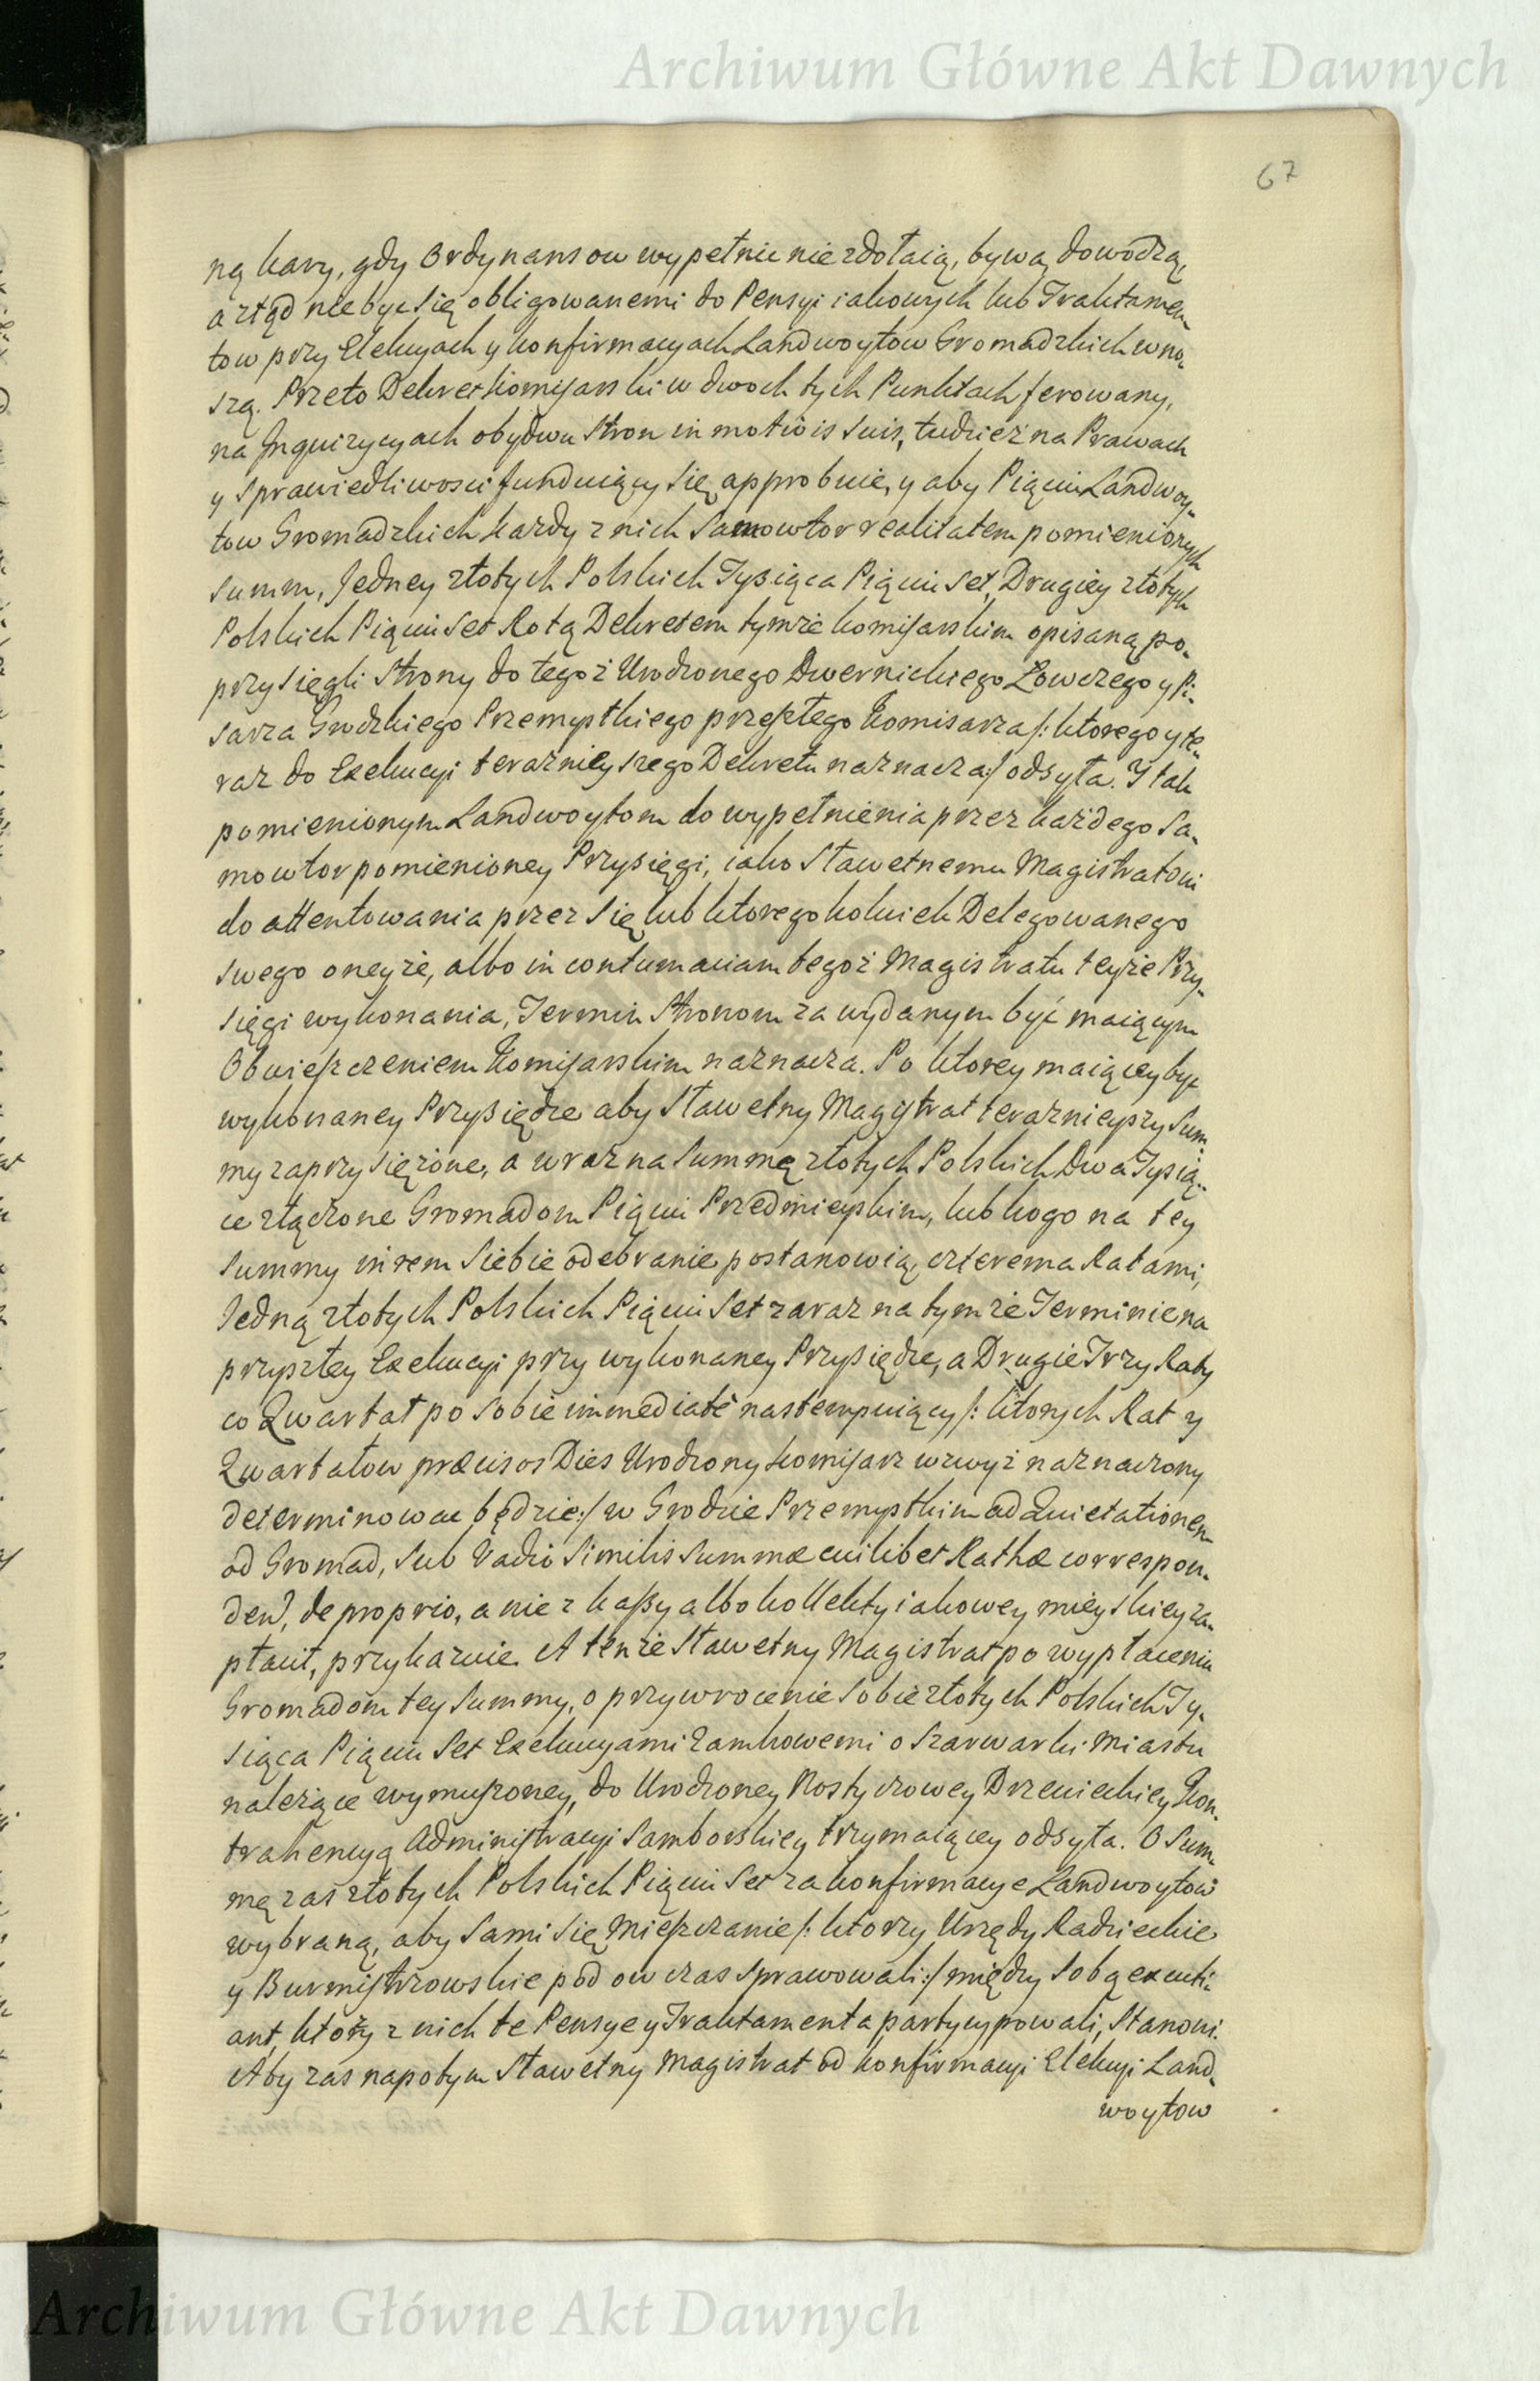 Archiwum Główne Akt Dawnych
67
ną kary, gdy Ordynansow wypełnić nie zdołaią, bywą dowodzą,
a ztąd nie być się obligowanemi do Pensyi iakowych lub Traktamen-
tow przy Elekcyach y konfirmacyach Landwoytow Gromadzkich wno-
szą. Przeto Dekret komisarski w dwoch tych Punktach ferowany,
na Inquizycyach obydwu stron in motivis suis, tudzież na Prawach
y sprawiedliwosci funduiący się approbuie, y aby Piąciu Landwoy-
tow Gromadzkich każdy z nich samowtor realitatem pomienionych
summ, Jedney złotych Polskich Tysiąca Piąciu set, Drugiey złotych
Polskich Piąciu set Rotą Dekretem tymże komisarskim opisaną po-
przysięgli strony do tegoż Urodzonego Dwernickiego Łowczego y Pi-
sarza Grodzkiego Przemyslkiego przeszłego komisarza /: ktorego y te-
raz do Exekucyi teraznieyszego Dekretu naznacza :/ odsyła. Y tak
pomienionym Landwoytom do wypełnienia przez każdego sa-
mowtor pomienioney Przysięgi, iako Sławetnemu Magistratowi
do attentowania przez się lub ktoregokolwiek Delegowanego
swego oneyże, albo in contumaciam tegoż Magistratu teyże Przy-
sięgi wykonania, Termin stronom za wydanym być maiącym
Obwieszczeniem komisarskim naznacza. Po ktorey maiącey być
wykonaney Przysiędze aby Sławetny Magistrat teraznieyszy Sum-
my zaprzysiężone, a wraz na summę złotych Polskich Dwa Tysią-
ce złączone Gromadom Piąciu Przedmieyskim, lub kogo na tey
summy in rem siebie odebranie postanowią, czterema Ratami,
Jedną złotych Polskich Piąciu set zaraz na tymże Terminie na
przyszłey Exekucyi przy wykonaney Przysiędze, a Drugie Trzy Raty
co Qwartał po sobie immediatè nastempuiący /: ktorych Rat y
Qwartałow præcisos Dies Urodzony komisarz wzwyż naznaczony
determinowac będzie :/ w Grodzie Przemyslkim ad Quietationem
od Gromad, sub Vadio similis summæ cuilibet Rathæ correspon-
den, de proprio, a nie z kassy albo kollekty iakowey mieyskiey za-
płacił, przykazuie. A tenże Sławetny Magistrat po wypłaceniu
Gromadom tey summy, o przywrocenie sobie złotych Polskich Ty-
siąca Piąciu Set Exekucyami zamkowemi o szarwarki Miastu
należące wymuszoney, do Urodzoney Rostyczowey Drzewieckiey Kon-
trahencyą Administracyi Samborskiey trzymaiącey odsyła. O Sum-
mę zas złotych Polskich Piąciu Set za konfirmacye Landwoytow
wybraną, aby sami się Mieszczanie /: ktorzy Urzędy Radzieckie
y Burmistrzowskie pod ow czas sprawowali :/ między sobą excuti-
ant, ktorzy z nich te Pensye y Traktamenta partycypowali, Stanowi.
Aby zas napotym Sławetny Magistrat od konfirmacyi Elekcyi Land-
woytow
Archiwum Główne Akt Dawnych